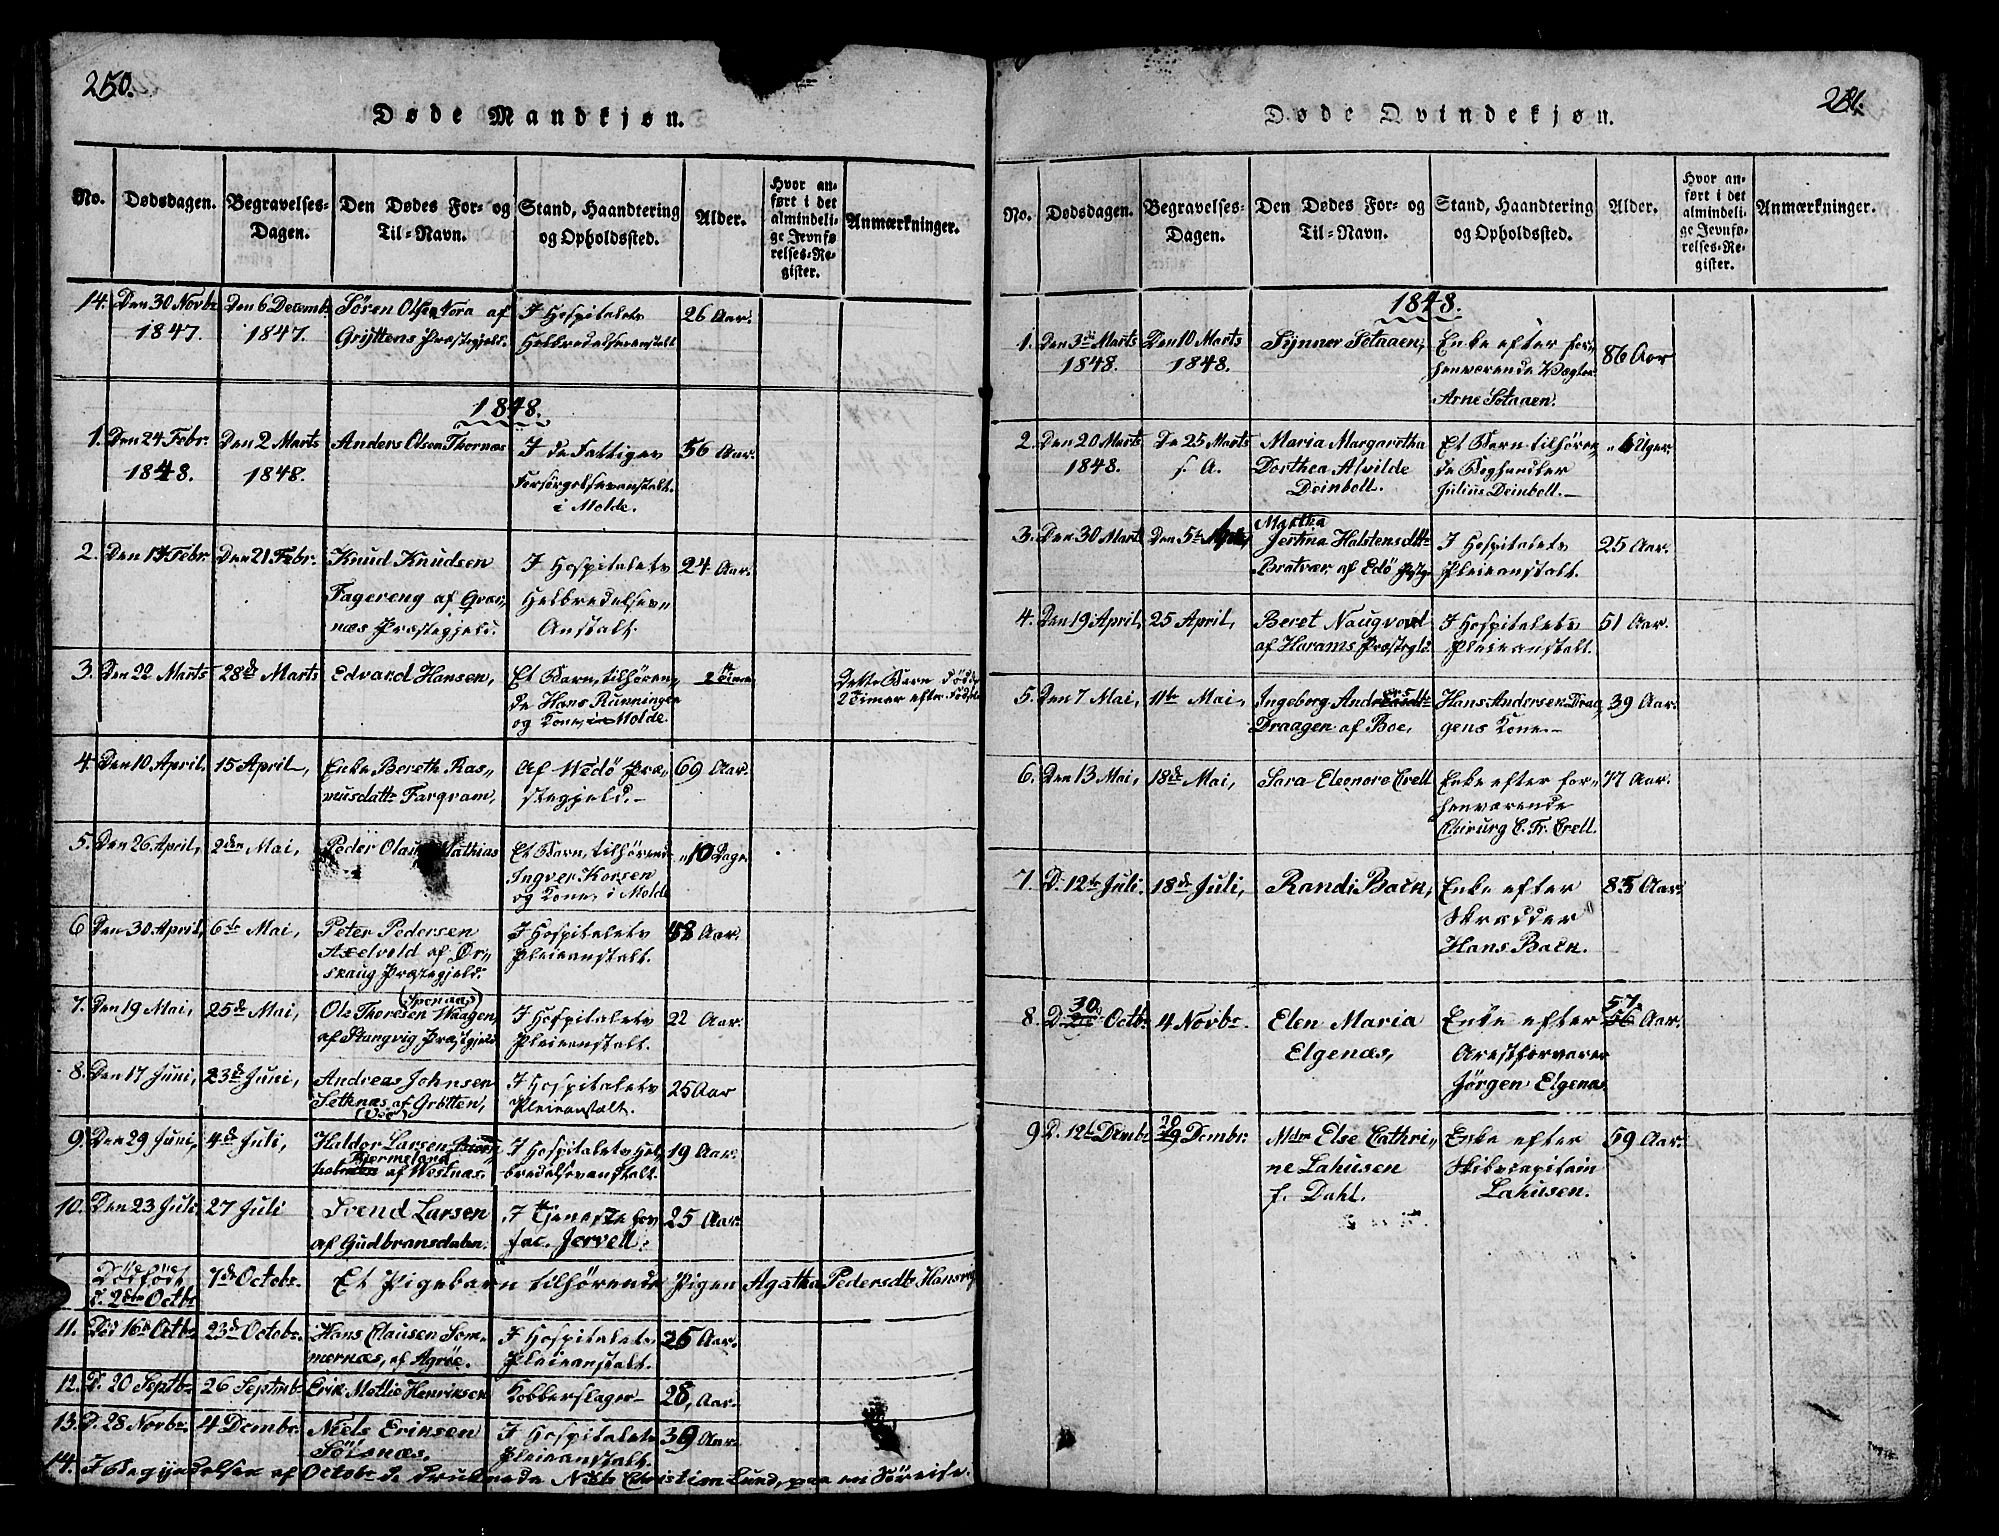 250.
Døde Mandkjøn.
No.
Dødsdagen.
Begravelses-
Dagen.
Den Dødes For- og
Til-Navn.
Stand, Haandtering
og Opholdssted.
Alder.
Hvor an-
ført i det
almindeli-
ge Jevnfø-
relses-Re-
gister.
Anmærkninger.
14. Den 30 Novbr Den 6 Decemb. Søren Olsen Nora af I Hospitalets 26 Aar.
1847. 1847. Gryttens Præstegjeld. Helbredelsesanstalt
1848.
1. Den 24 Febr. Den 2 Marts Anders Olsen Thornæs I de Fattiges 56 Aar.
1848. 1848. Forsørgelsesanstalt.
i Molde.
2. Den 14 Febr. Den 21 Febr. Knud Knudsen I Hospitalets 24 Aar.
Fagereng af Helbredelses-
næs Præstegjeld. Anstalt.
3. Den 22 Marts 28de Marts Edvard Hansen, Et Barn, tilhøren- 2 Timer Dette Barn døde
de Hans Rønningen 2 Timer efter Fødselen
og Kone, i Molde.
4. Den 10 April, 15 April, Enke Bereth Ras- Af Wedø Præ- 69 Aar.
musdattr Fargram, stegjeld.
5. Den 26 April, 2den Mai, Peder Olaus Mathias Et Barn, tilhørende 10 Dage
Ingver Korsen
og Kone, i Molde
6 Den 30 April, 6te Mai, Peter Pedersen I Hospitalets 58 Aar.
Axelvold af Ør- Pleieanstalt.
skaug Præstegjeld.
(Spenaas)
7. Den 19 Mai, 25de Mai, Ole Theresen Waagen, I Hospitalets 22 Aar.
af Stangvig Præstgjeld Pleieanstalt.
8. Den 17 Juni, 23de Juni, Andreas Johnsen I Hospitalets 25 Aar
Setnæs af Grøtten, Pleieanstalt.
9. Den 29 Juni, 4de Juli, Haldor Larsen I Hospitalets Hel- 19 Aar.
Bjermeland
af Westnæs. bredelsesanstalt.
10. Den 23 Juli 27 Juli Svend Larsen I Tjeneste hos 25 Aar.
af Gudbransdalen. fac. Jervell.
Dødfødt 7de Octobr. Et Pigebarn tilhørende Pigen Agatha Pedersdtr
d. 2den Octbr
11. Død 16de Octbr 23de Octobr. Hans Clausen Som- I Hospitalets 26 Aar.
mernæs, af Agrøe. Pleieanstalt.
12. D. 20 Septbr. 26 Septmbr Erik Mellie Henriksen Kobberslager 28, Aar.
13. D. 28 Novbr. 4 Dembr. Niels Eriksen I Hospitalets 39 Aar.
Sølsnæs. Pleieanstalt.
14. I Begyndelsen af Octobr de druknede Niels Christian Lund, paa en Søreise.
281.
Døde Qvindekjøn.
No.
Dødsdagen.
Begravelses-
Dagen.
Den Dødes For- og
Til-Navn.
Stand, Haandtering
og Opholdssted.
Alder.
Hvor an-
ført i det
almindeli-
ge Jevnfø-
relses-Re-
gister.
Anmærkninger.
1848.
1. Den 3die Marts Den 10 Marts Synner Sotaaen, Enke efter for- 86 Aar
1848. 1848. henværende Vægter
Arne Sotaaen.
2. Den 20 Marts De 25 Marts Maria Margaretha Et Barn tilhøren- 6 Uger.
1848. s. A. Dorthea Alvilde de Boghandler
Deinboll. Julius Deinboll.
Martha
3. Den 30 Marts Den 5te April Jertina Halstensdttr I Hospitalets 25 Aar.
Bratvær, af Edø Pleieanstalt.
4. Den 19 April, 25 April, Beret Naugvold I Hospitalets 51 Aar.
af Harams Præstegld. Pleieanstalt.
5. Den 7 Mai, 11te Mai, Ingeborg Hans Andersen Draa- 39 Aar.
Draagen af Boe, gens Kone.
6. Den 13 Mai, 18de Mai, Sara Eleonore Crell Enke efter for- 77 Aar.
henværende
Chirurg C. Fr. Crell.
7. D. 12te Juli. 18de Juli, Randi Back, Enke efter 85 Aar.
Skrædder
Hans Back.
30 57.
8. D. Octbr. 4 Novbr. Elen Maria Enke efter 56 Aar.
Elgenæs, Arestforvarer
Jørgen Elgenæs
20
9 D. 12te Dembr 19 Dembr. Mdm Else Cathri- Enke efter 59 Aar.
ne Lahusen Skibscapitain
f. Dahl. Lahusen.